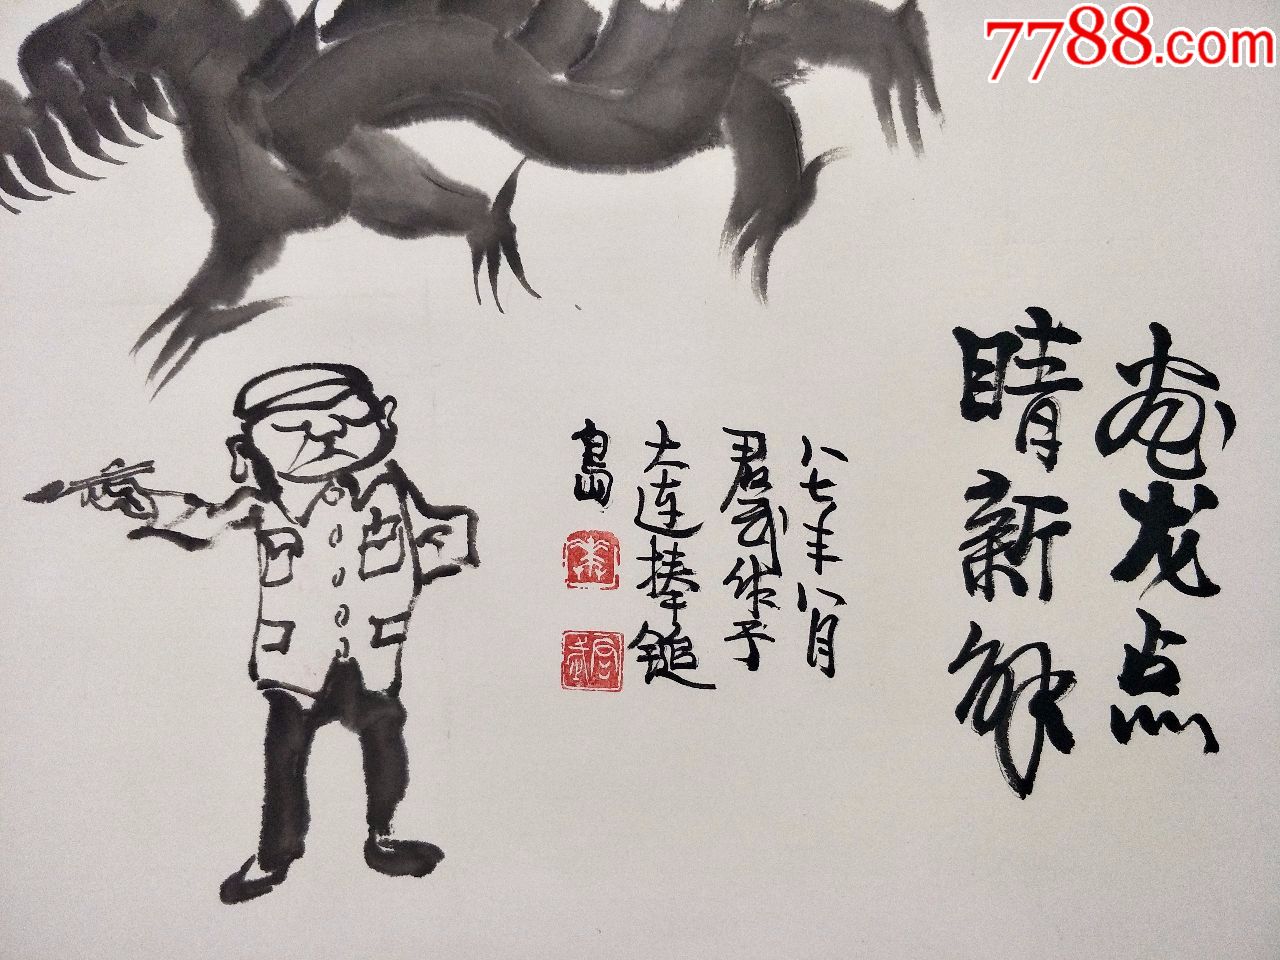 7788.com
画龙点
睛新解
八七年八月
君武作于
大连棒锤
岛
君武